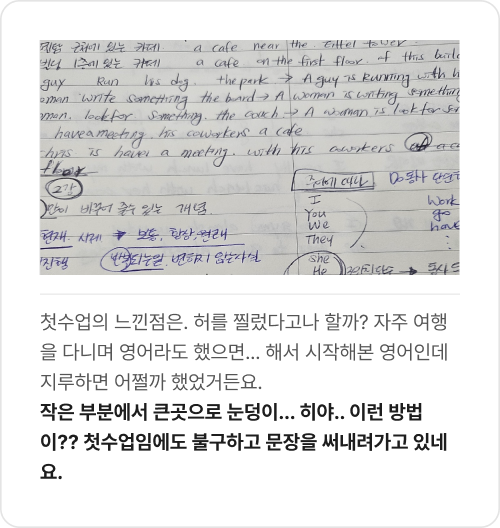 에펠 근처에 있는 카페 a cafe near the Eiffel tower.
빌딩 1층에 있는 카페 a cafe on the first floor of this build
guy Run his dog. the park → A guy is Running with h
oman write something the board → A woman is writing something
man. look for something. the couch → A woman is look for so
have a meeting. his coworkers a cafe
chris is haver a meeting. with his coworkers a ca
floor
2강
주어에 따라 Do동사
비추어 줄수 있는 개념.
I
You
We
They
Work
go
have
현재 시제 → 보통, 일상, 현재
진행 반복되는일, 변하지 않는사실
She
He
3인칭단수 → 동사
첫수업의 느낀점은. 허를 찔렀다고나 할까? 자주 여행
을 다니며 영어라도 했으면... 해서 시작해본 영어인데
지루하면 어쩔까 했었거든요.
작은 부분에서 큰곳으로 눈덩이... 히야.. 이런 방법
이?? 첫수업임에도 불구하고 문장을 써내려가고 있네
요.